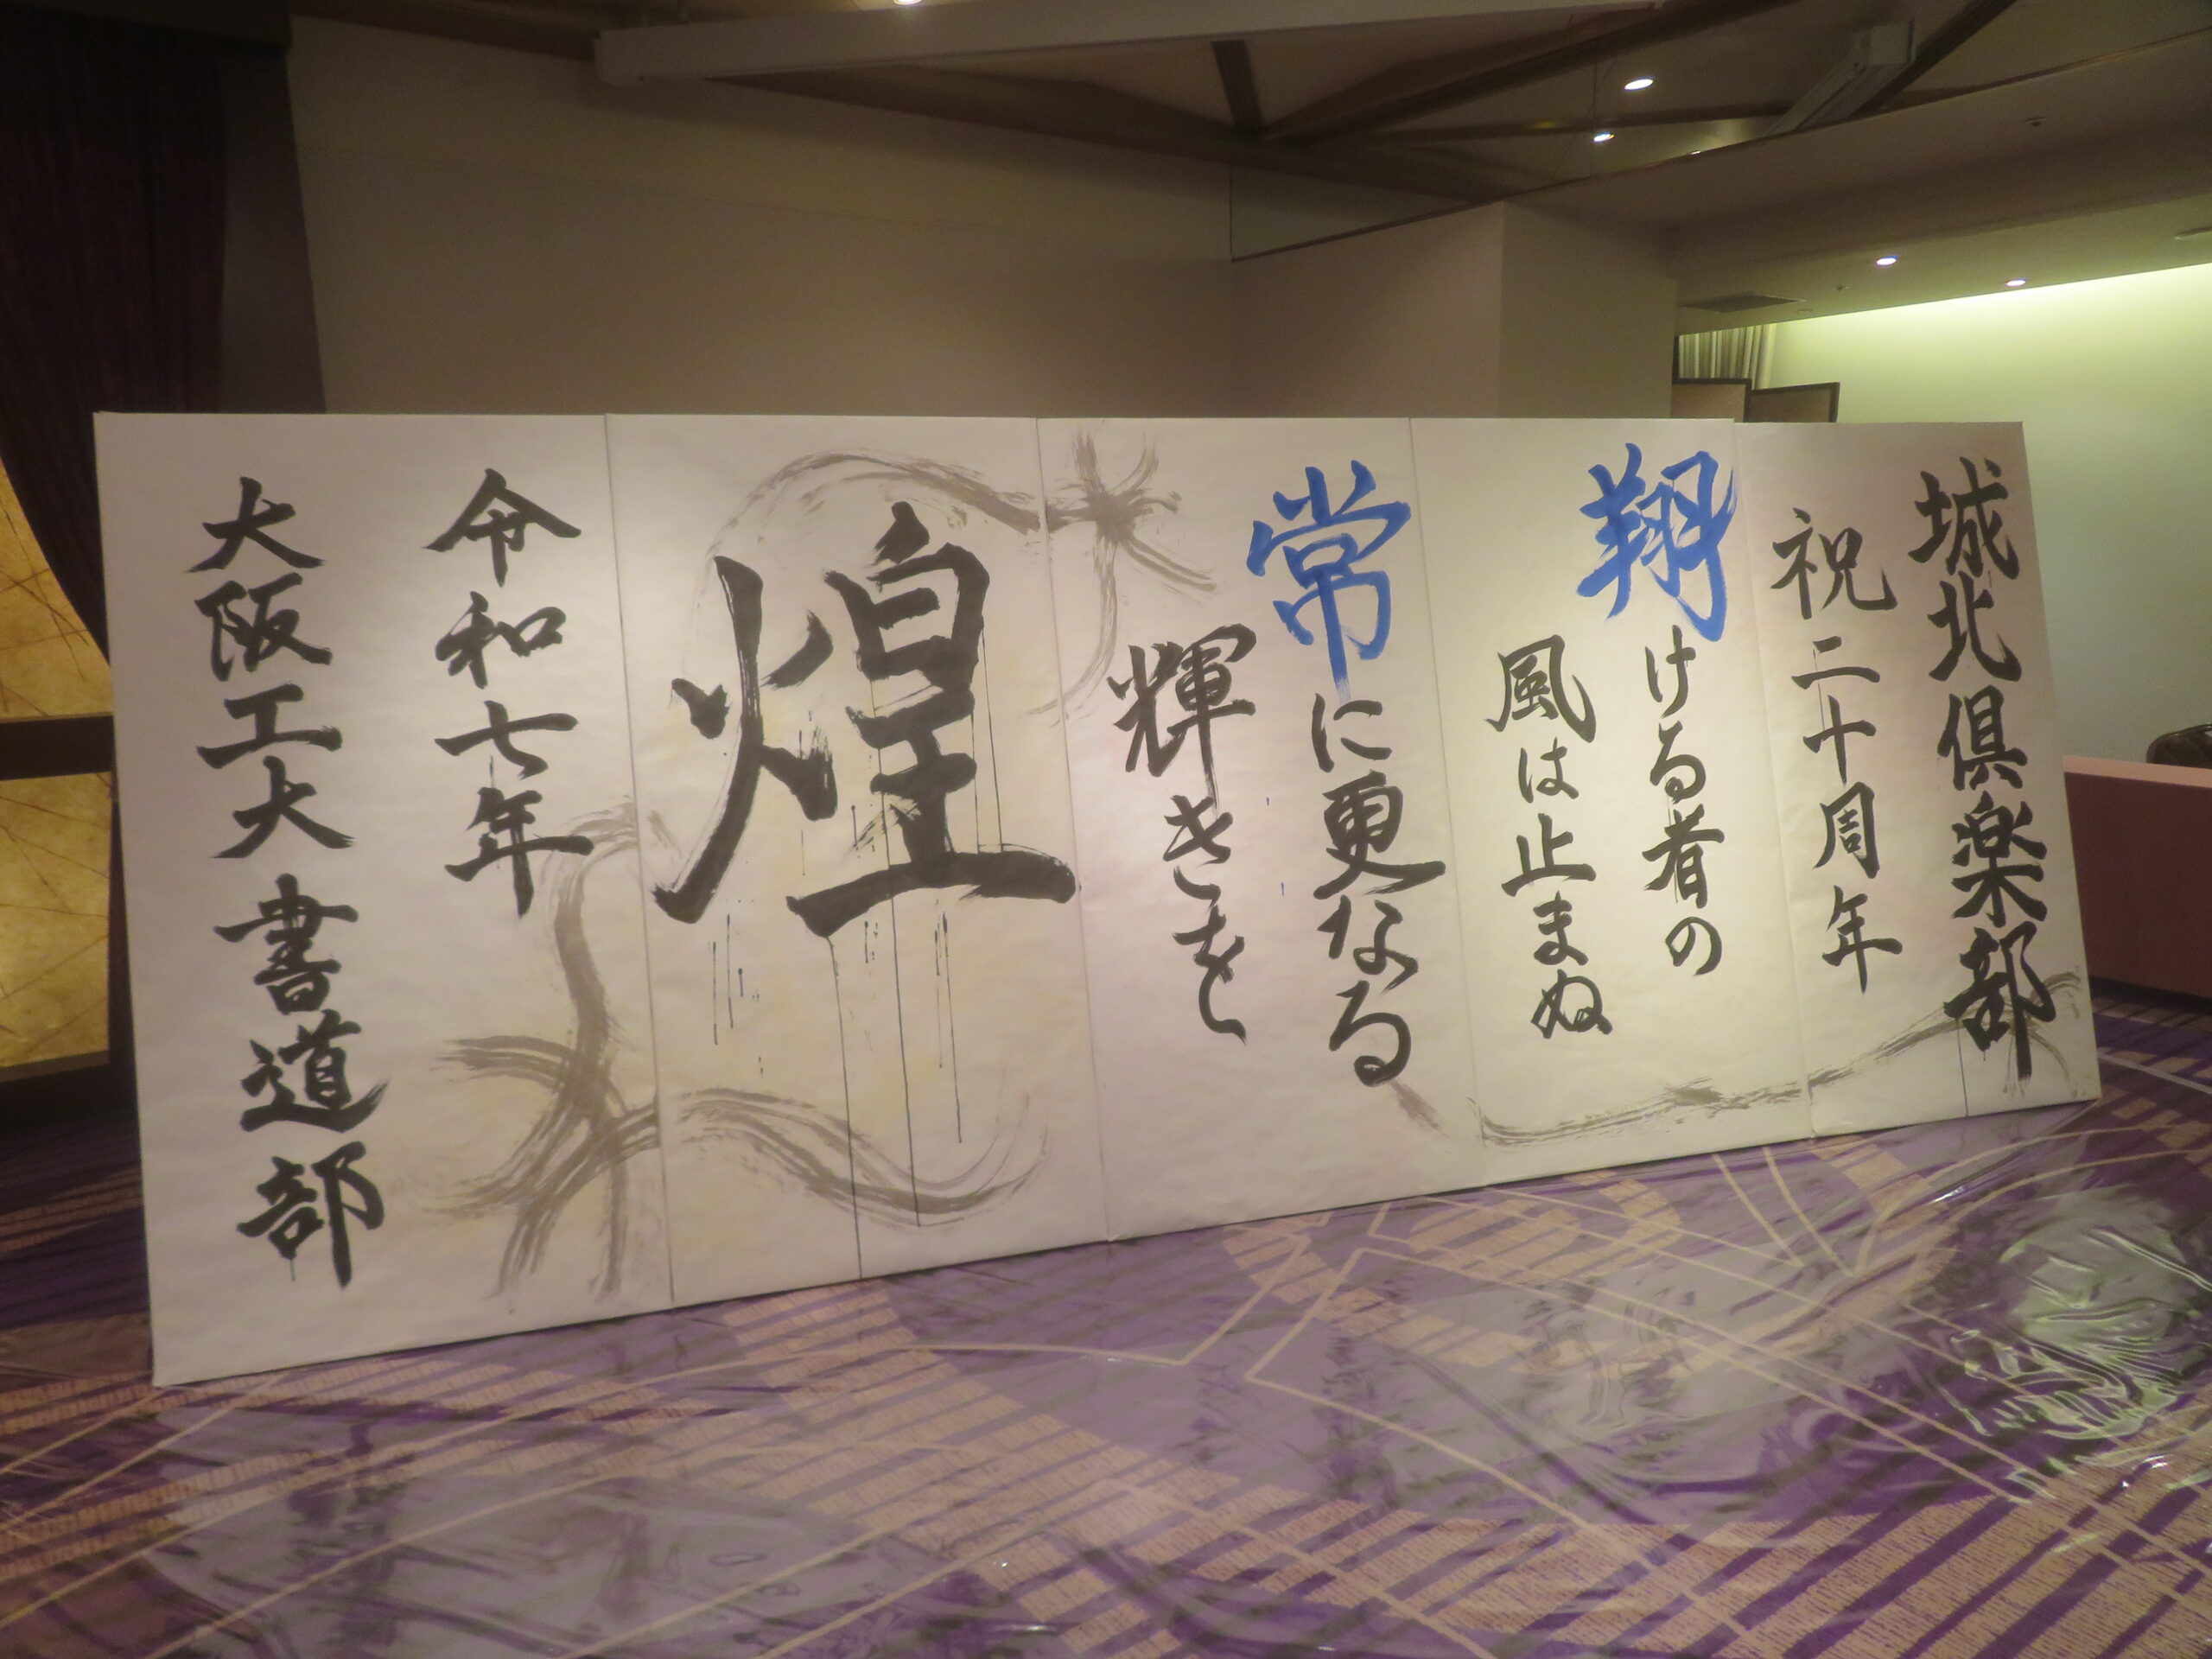 城北倶楽部
祝二十周年
翔ける者の
風は止まぬ
常に更なる
輝きを
煌
令和七年
大阪工大 書道部